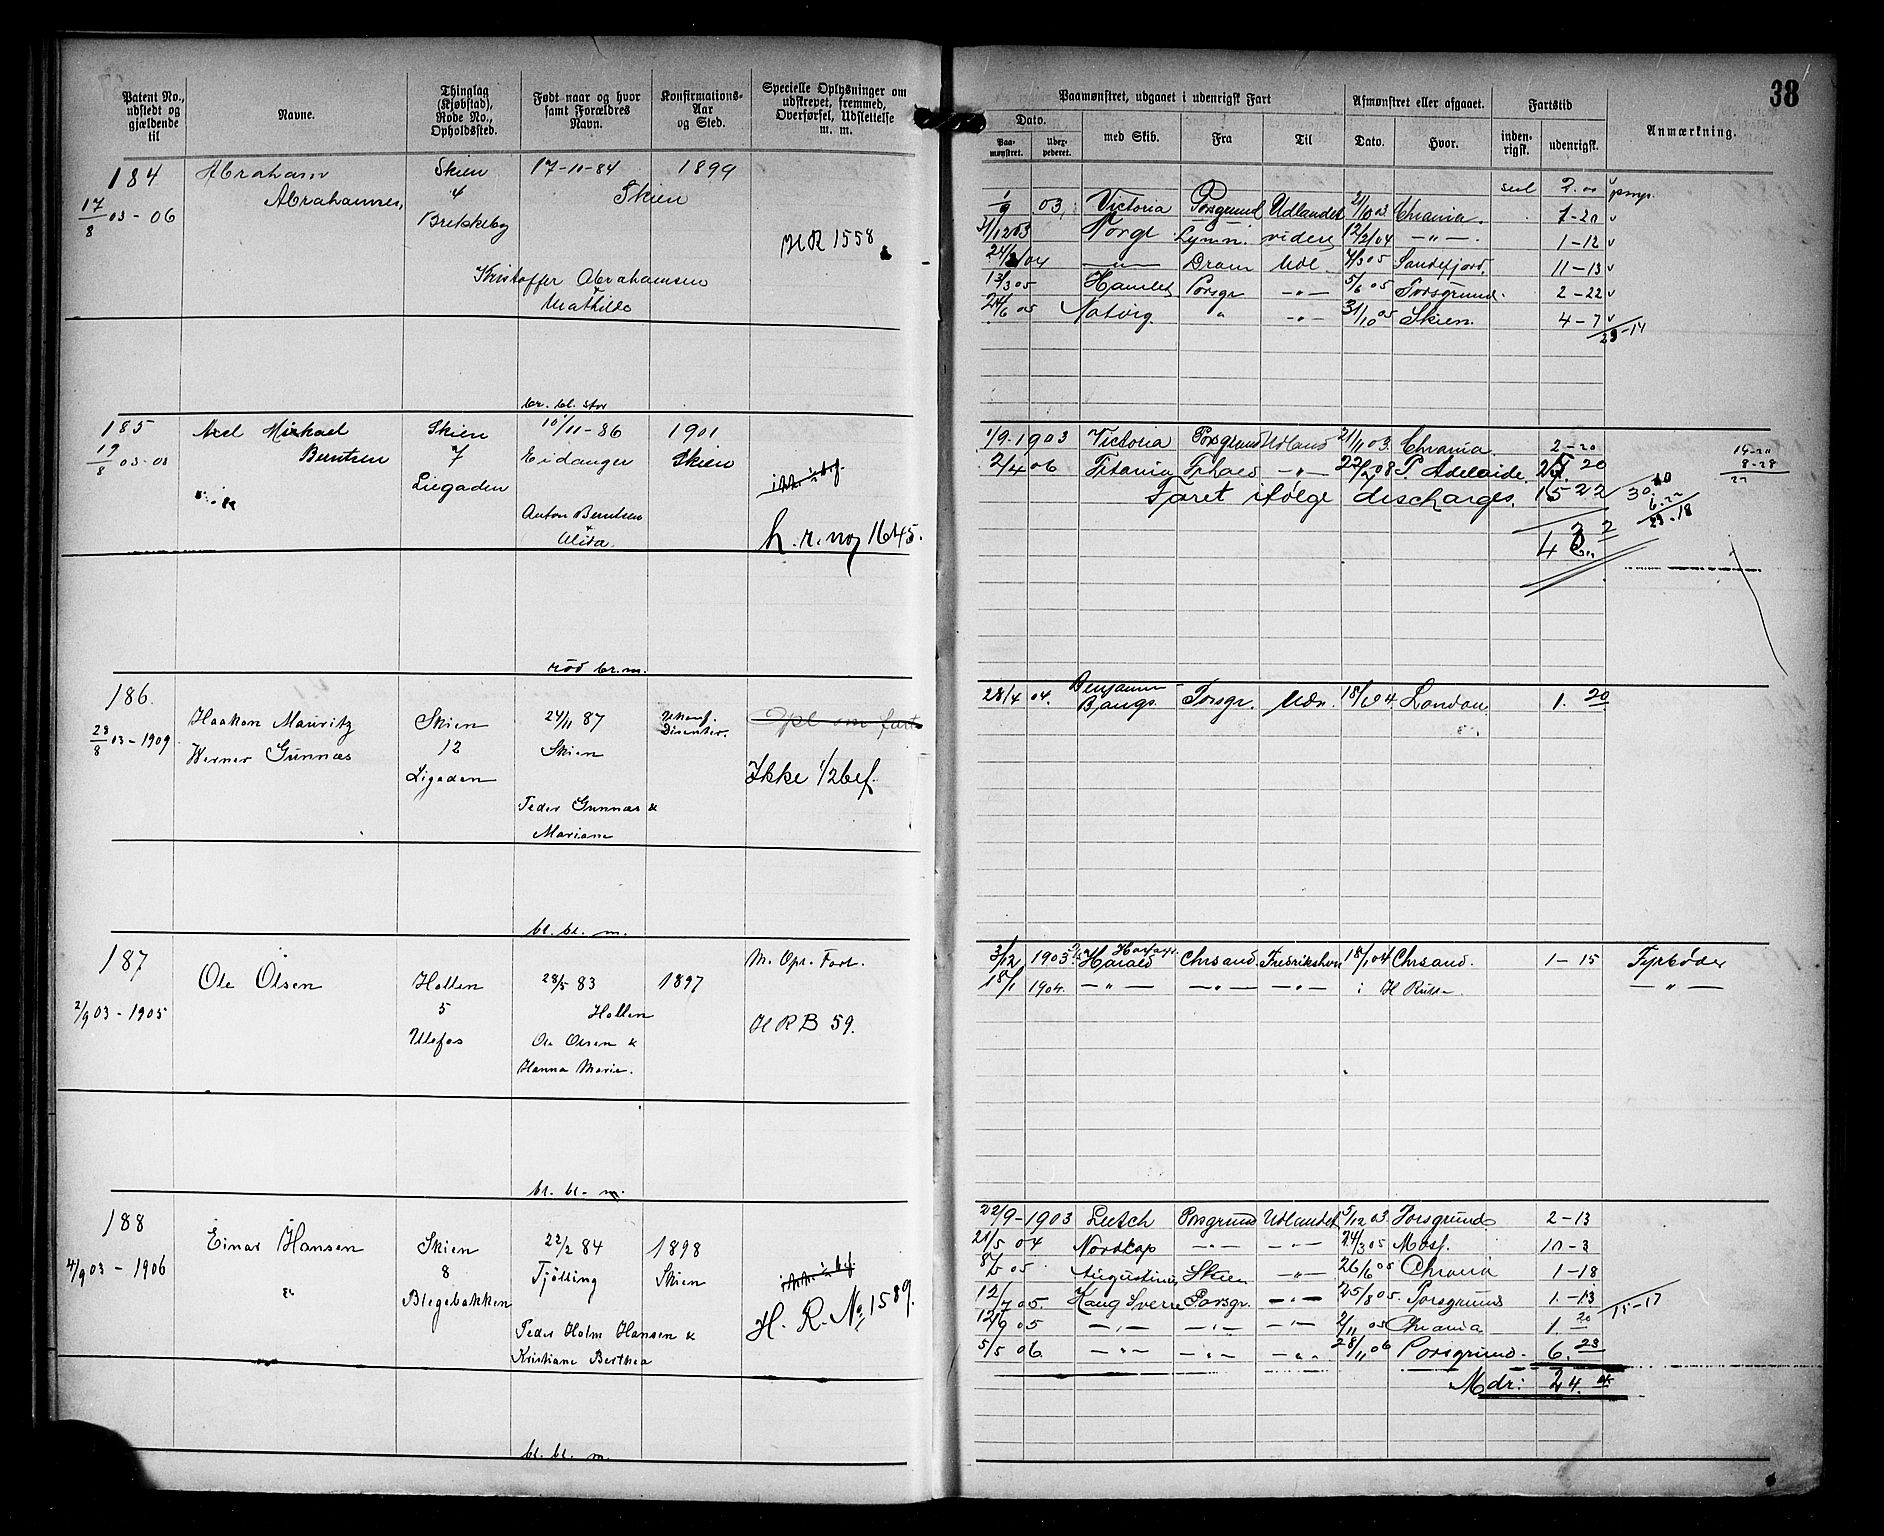 38
Patent No., udstedt og gjældende til
Navne.
Thinglag (Kjøbstad), Rode No., Opholdssted.
Født naar og hvor samt Forældres Navn.
Konfirmations-Aar og Sted.
Specielle Oplysninger om udskrevet, fremmed, Overførsel, Udslettelse m. m.
Paamønstret, udgaaet i udenrigsk Fart
Afmønstret eller afgaaet.
Fartstid
Anmærkning.
Dato.
Paa-mønstret.
Udex-pederet.
med Skib.
Fra
Til
Dato.
Hvor.
inden-rigsk.
udenrigsk.
184
17/8 03-06
Abraham
Abrahamsen,
Skien
4
Brekkeby
17-11-84
Skien
1899
H R 1558
Kristoffer Abrahamsen
+
Mathilde
1/9 03, Victoria Porsgrund Udlandet 21/10 03 Chrania. 1-20
31/12 03 Norge videre 12/2 04 -"-. 1-12
-"- Dram Udl. 4/3 05 Sandefjord. 11-13
13/3 05 Hamlet Porsgr -"- 5/6 05 Porsgrund. 2-22
24/6 05 Natvig. " -"- 31/10 05 Skien. 4-7
23-14
br. bl. stor
185
Axel Mikael
Berntsen
Skien
7
Liegaden
10/11-86
Eidanger
Anton Berntsen
+
1901
Skien
h. r. no 1645.
1/9-1903 Victoria Porsgrund Udland 21/11 03. Chrania. 2-20
2/4 06 Titania -"- P. Adelaide. 20
Faret ifølge discharges. 15 22
23-18
rød br. m.
186.
28/8 03-1909
Haakon Mauritz
Werner Gunnæs
Skien
12
Ligaden
24/11 87
Skien
Peder Gunnæs &
Mariane
Ukonf.
Disenter.
Opl om fart
Ikke 1/2 bef.
28/4 04. Benjamin
Bangs. Porsgr. Udn. London. 1. 20
bl. bl. m.
187
2/9 03-1905
Ole Olsen
Hollen
5
Ulefos
28/5 83
Hollen
Ole Olsen &
Hanna Marie.
1897
M. Opl. Fart.
H R B 59.
3/12 1903 Harald Chrsand Fredrikshvn 18/1 04 Chrsand. 1-15 Fyrbøder
18/1 1904. -"- -"- -"- -"-
bl. bl. m.
188
4/9 03-1906
Einar Hansen
Skien
8
Blegebakken
22/2 84
Tjølling
Peder Holm Hansen &
Kristiane Berthea
1898
Skien
H. R. No 1589.
22/9-1903 Porsgrund Udlandet 5/12 03 Porsgrund 2-13
21/5 04 Nordkap -"- -"- 24/3 05 Moss. 10-3
Augustinus Skien -"- 26/6 05 Chrania 1-18
12/7 05. Kong Sverre Porsgr. -"- 25/8 05. Porsgrund 1-13
15-17
12/9 05 -"- -"- -"- 2/11 05 Chrania 1. 20
5/5 06. -"- -"- -"- 28/11 06 Porsgrund. 6. 23
Mdr: 24.
bl. bl. m.